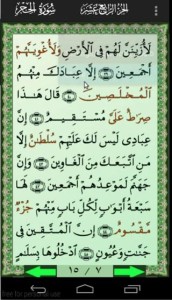 الجزء الرابع عشر سورة الحجر
لَأُزَيِّنَنَّ لَهُمْ فِي الْأَرْضِ وَلَأُغْوِيَنَّهُمْ
أَجْمَعِينَ ﴿٣٩﴾ إِلَّا عِبَادَكَ مِنْهُمُ
الْمُخْلَصِينَ ﴿٤٠﴾ قَالَ هَٰذَا
صِرَٰطٌ عَلَيَّ مُسْتَقِيمٌ ﴿٤١﴾ إِنَّ
عِبَادِي لَيْسَ لَكَ عَلَيْهِمْ سُلْطَٰنٌ إِلَّا
مَنِ اتَّبَعَكَ مِنَ الْغَاوِينَ ﴿٤٢﴾ وَإِنَّ
جَهَنَّمَ لَمَوْعِدُهُمْ أَجْمَعِينَ ﴿٤٣﴾ لَهَا
سَبْعَةُ أَبْوَٰبٍ لِّكُلِّ بَابٍ مِّنْهُمْ جُزْءٌ
مَّقْسُومٌ ﴿٤٤﴾ إِنَّ الْمُتَّقِينَ فِي
جَنَّٰتٍ وَعُيُونٍ ﴿٤٥﴾ ادْخُلُوهَا بِسَلَٰمٍ
١٥ / ٧